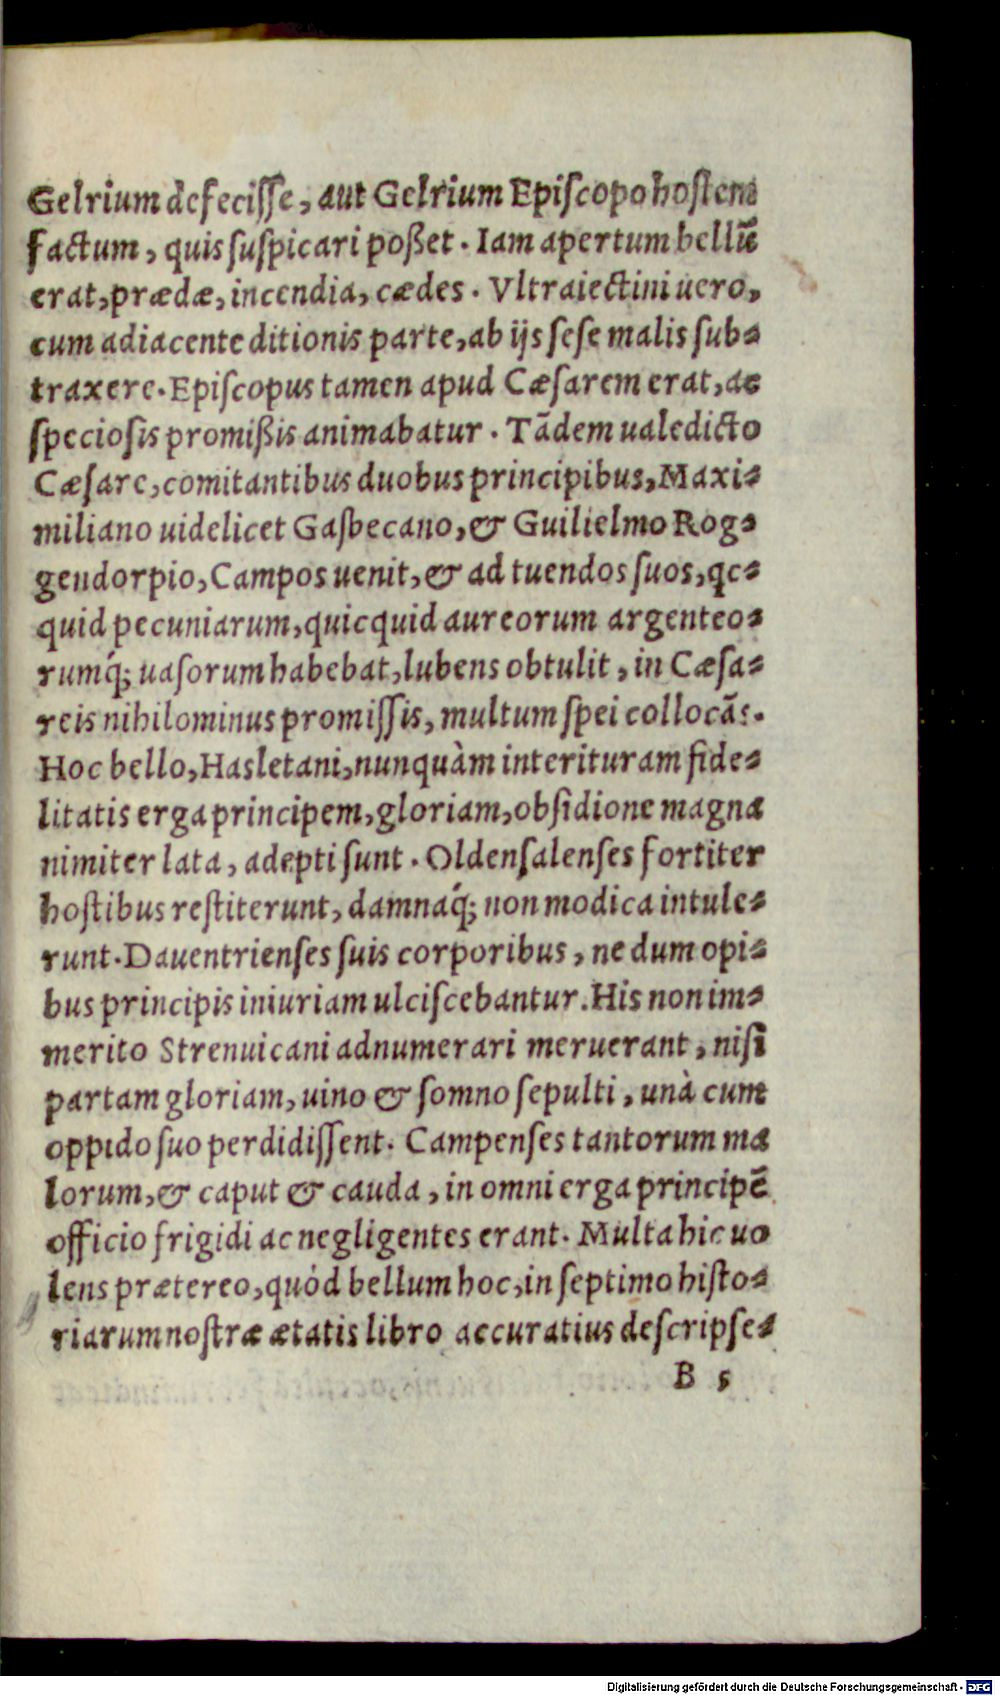 Gelrium defecisse, aut Gelrium Episcopo hostem
factum, quis suspicari poßet. Iam apertum bellū
erat, prædæ, incendia, cædes. Vltraiectini uero,
cum adiacente ditionis parte, ab ijs sese malis sub-
traxere. Episcopus tamen apud Cæsarem erat, ac
speciosis promißis animabatur. Tādem ualedicto
Cæsare, comitantibus duobus principibus, Maxi-
miliano uidelicet Gasbecano, & Guilielmo Rog-
gendorpio, Campos uenit, & ad tuendos suos, qc-
quid pecuniarum, quicquid aureorum argenteo-
rumq́; uasorum habebat, lubens obtulit, in Cæsa-
reis nihilominus promissis, multum spei collocās.
Hoc bello, Hasletani, nunquàm interituram fide-
litatis erga principem, gloriam, obsidione magna
nimiter lata, adepti sunt. Oldensalenses fortiter
hostibus restiterunt, damnaq́; non modica intule-
runt. Dauentrienses suis corporibus, ne dum opi-
bus principis iniuriam ulciscebantur. His non im-
merito Strenuicani adnumerari meruerant, nisi
partam gloriam, uino & somno sepulti, unà cum
oppido suo perdidissent. Campenses tantorum ma
lorum, & caput & cauda, in omni erga principē
officio frigidi ac negligentes erant. Multa hic uo
lens prætereo, quòd bellum hoc, in septimo histo-
riarum nostræ ætatis libro accuratius descripse-
B 5
Digitalisierung gefördert durch die Deutsche Forschungsgemeinschaft - DFG